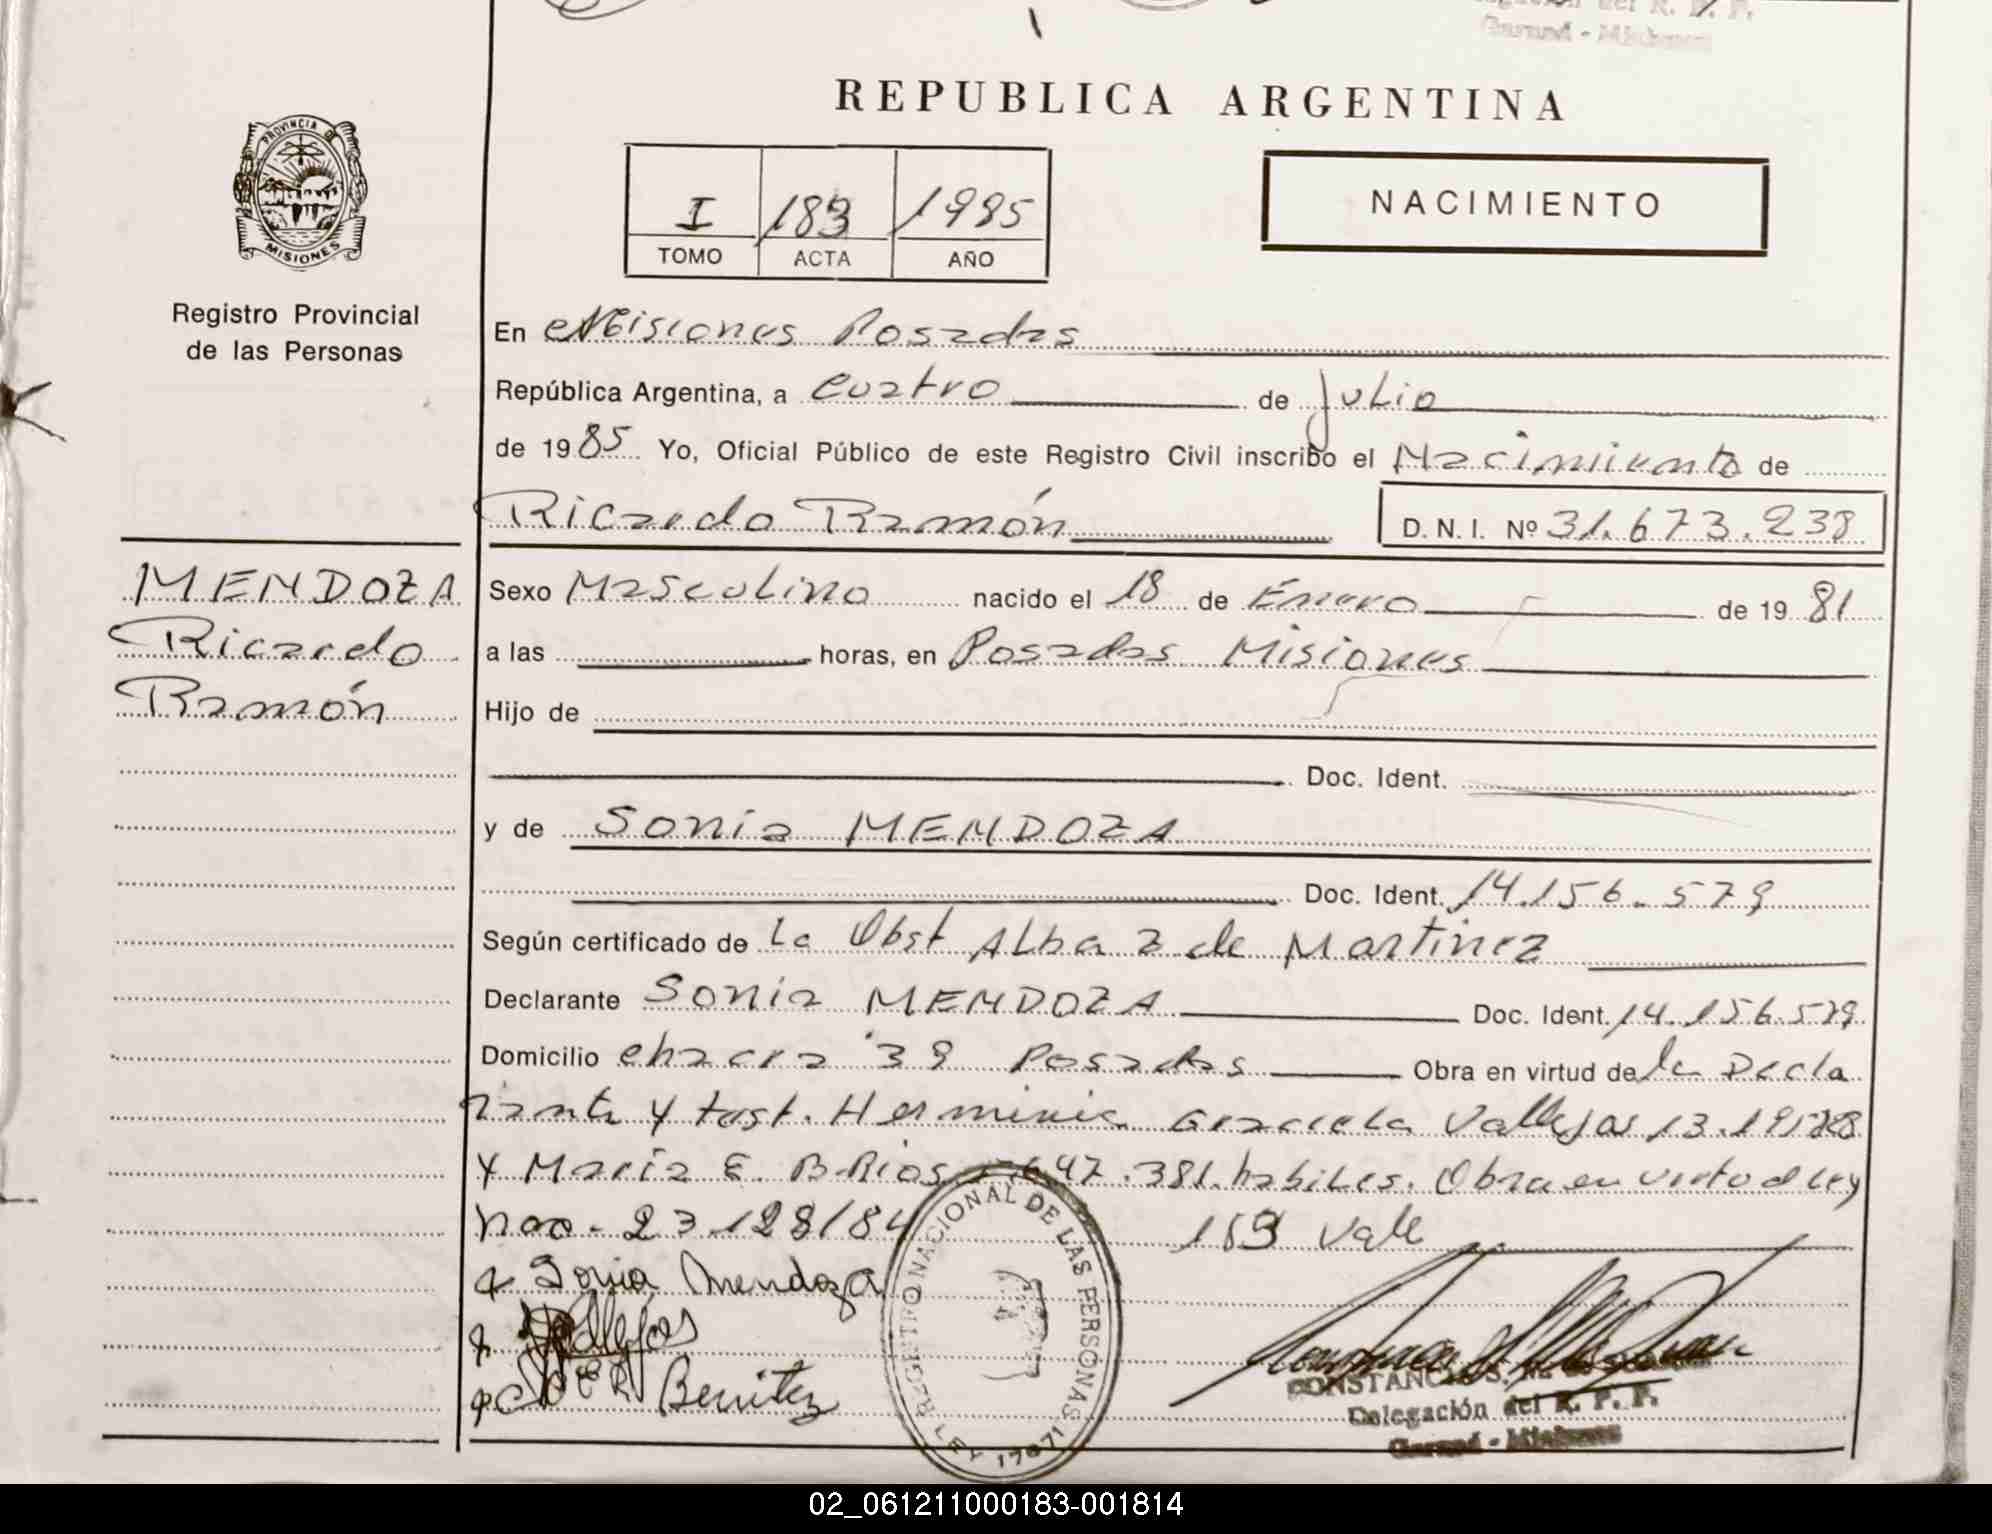 REPUBLICA ARGENTINA
PROVINCIA DE
MISIONES
Registro Provincial
de las Personas
I 183 1985
TOMO ACTA AÑO
NACIMIENTO
En Misiones Posadas
República Argentina, a Cuatro de Julio
de 1985 Yo, Oficial Público de este Registro Civil inscribo el Nacimiento de
Ricardo Ramón D.N.I. Nº 31.673.238
MENDOZA
Ricardo
Ramón
Sexo Masculino nacido el 18 de Enero de 1981
a las horas, en Posadas Misiones
Hijo de
Doc. Ident.
y de Sonia MENDOZA
Doc. Ident. 14.156.579
Según certificado de la Obst Alba Z de Martinez
Declarante Sonia MENDOZA Doc. Ident. 14.156.579
Domicilio chacra 39 Posadas Obra en virtud de la Decla
rante y test. Herminia Graciela Vallejos
y María E. B. Rios 381. habiles. Obra en virtud ley
Nac. 23.128/84 183 Vale
Sonia Mendoza
Vallejos
Benitez
REGISTRO NACIONAL DE LAS PERSONAS
LEY 17671
Delegación del R. P. P.
Garupá - Misiones
02_061211000183-001814